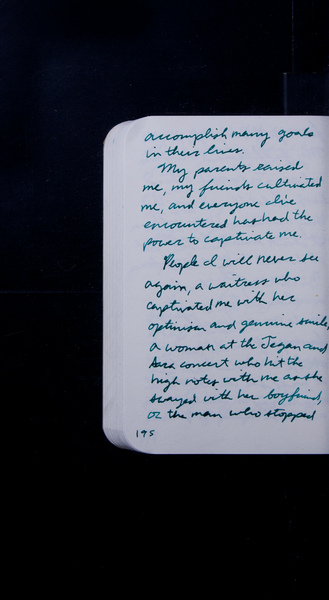 accomplish many goals
in their lives.
My parents raised
me, my friends cultivated
me, and everyone I've
encountered has had the
power to captivate me.
People I will never see
again, a waitress who
captivated me with her
optimism and genuine smile,
a woman at the Tegan and
Sara concert who hit the
high notes with me as she
swayed with her boyfriend,
or the man who stopped
195